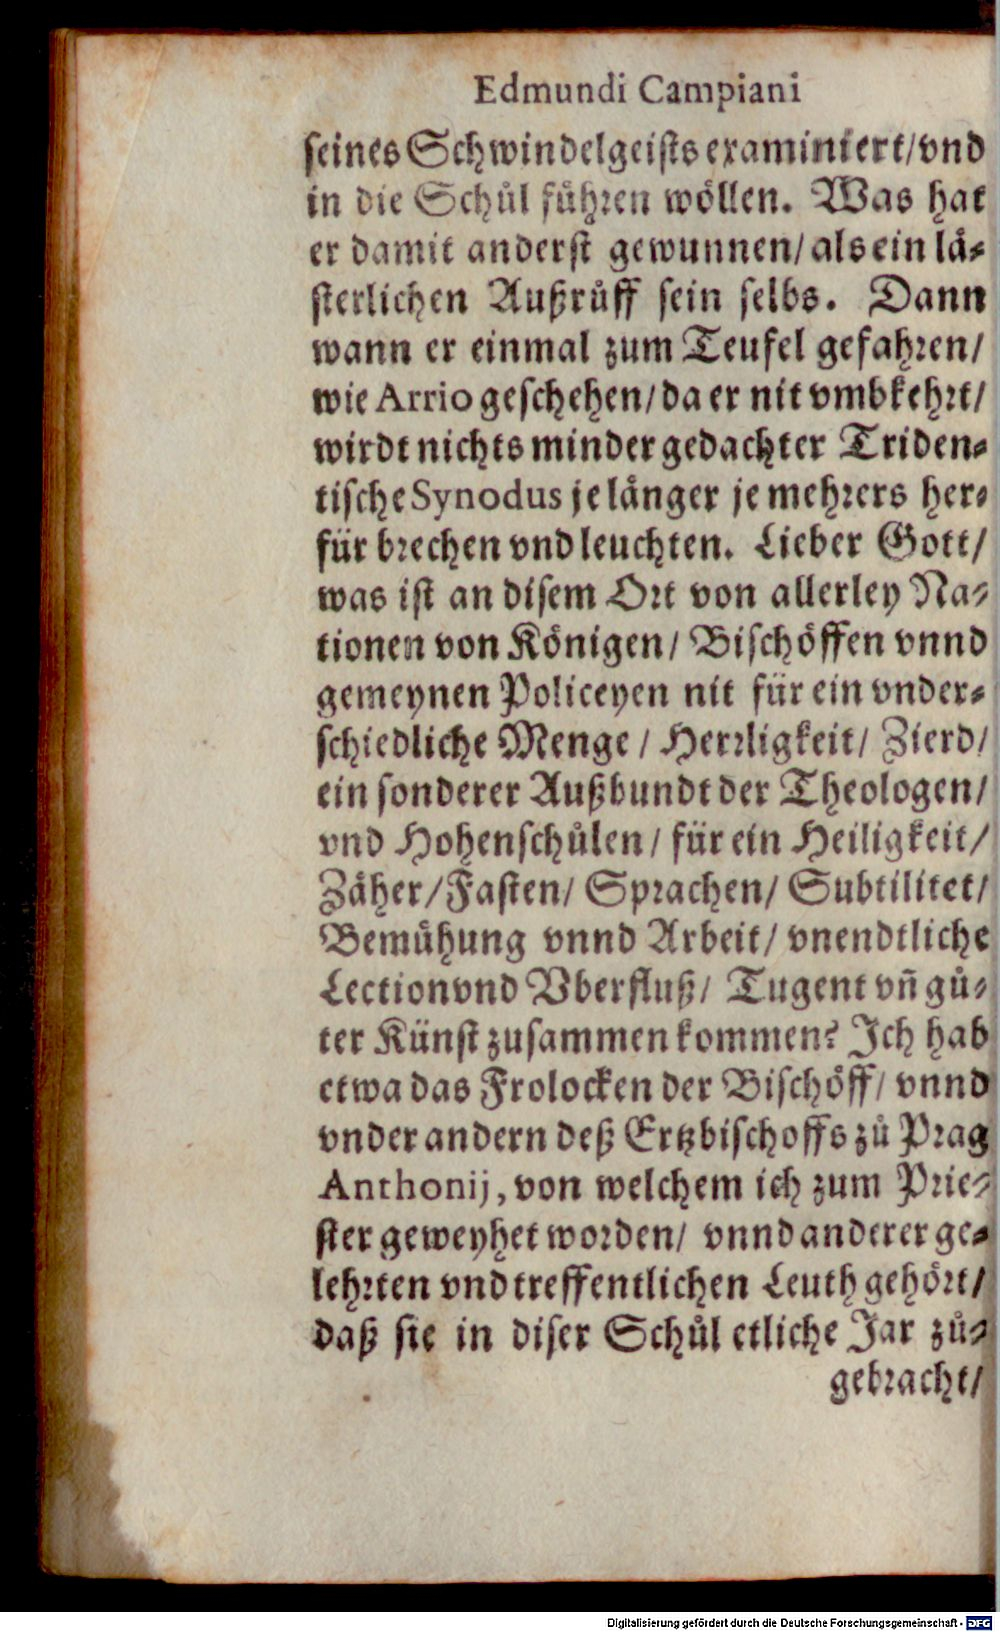 Edmundi Campiani
seines Schwindelgeists examiniert/vnd
in die Schůl fůhren wöllen. Was hat
er damit anderst gewunnen/als ein lå-
sterlichen Außrůff sein selbs. Dann
wann er einmal zum Teufel gefahren/
wie Arrio geschehen/da er nit vmbkehrt/
wirdt nichts minder gedachter Triden-
tische Synodus je långer je mehrers her-
für brechen vnd leuchten. Lieber Gott/
was ist an disem Ort von allerley Na-
tionen von Königen/ Bischöffen vnnd
gemeynen Policeyen nit für ein vnder-
schiedliche Menge / Herrligkeit/ Zierd/
ein sonderer Außbundt der Theologen/
vnd Hohenschůlen / für ein Heiligkeit/
Zåher/Fasten/ Sprachen/ Subtilitet/
Bemůhung vnnd Arbeit/ vnendtliche
Lection vnd Vberfluß/ Tugent vñ gů-
ter Künst zusammen kommen? Ich hab
etwa das Frolocken der Bischöff/ vnnd
vnder andern deß Ertzbischoffs zů Prag
Anthonij, von welchem ich zum Prie-
ster geweyhet worden/ vnnd anderer ge-
lehrten vnd treffentlichen Leuth gehört/
daß sie in diser Schůl etliche Jar zů-
gebracht/
Digitalisierung gefördert durch die Deutsche Forschungsgemeinschaft - DFG